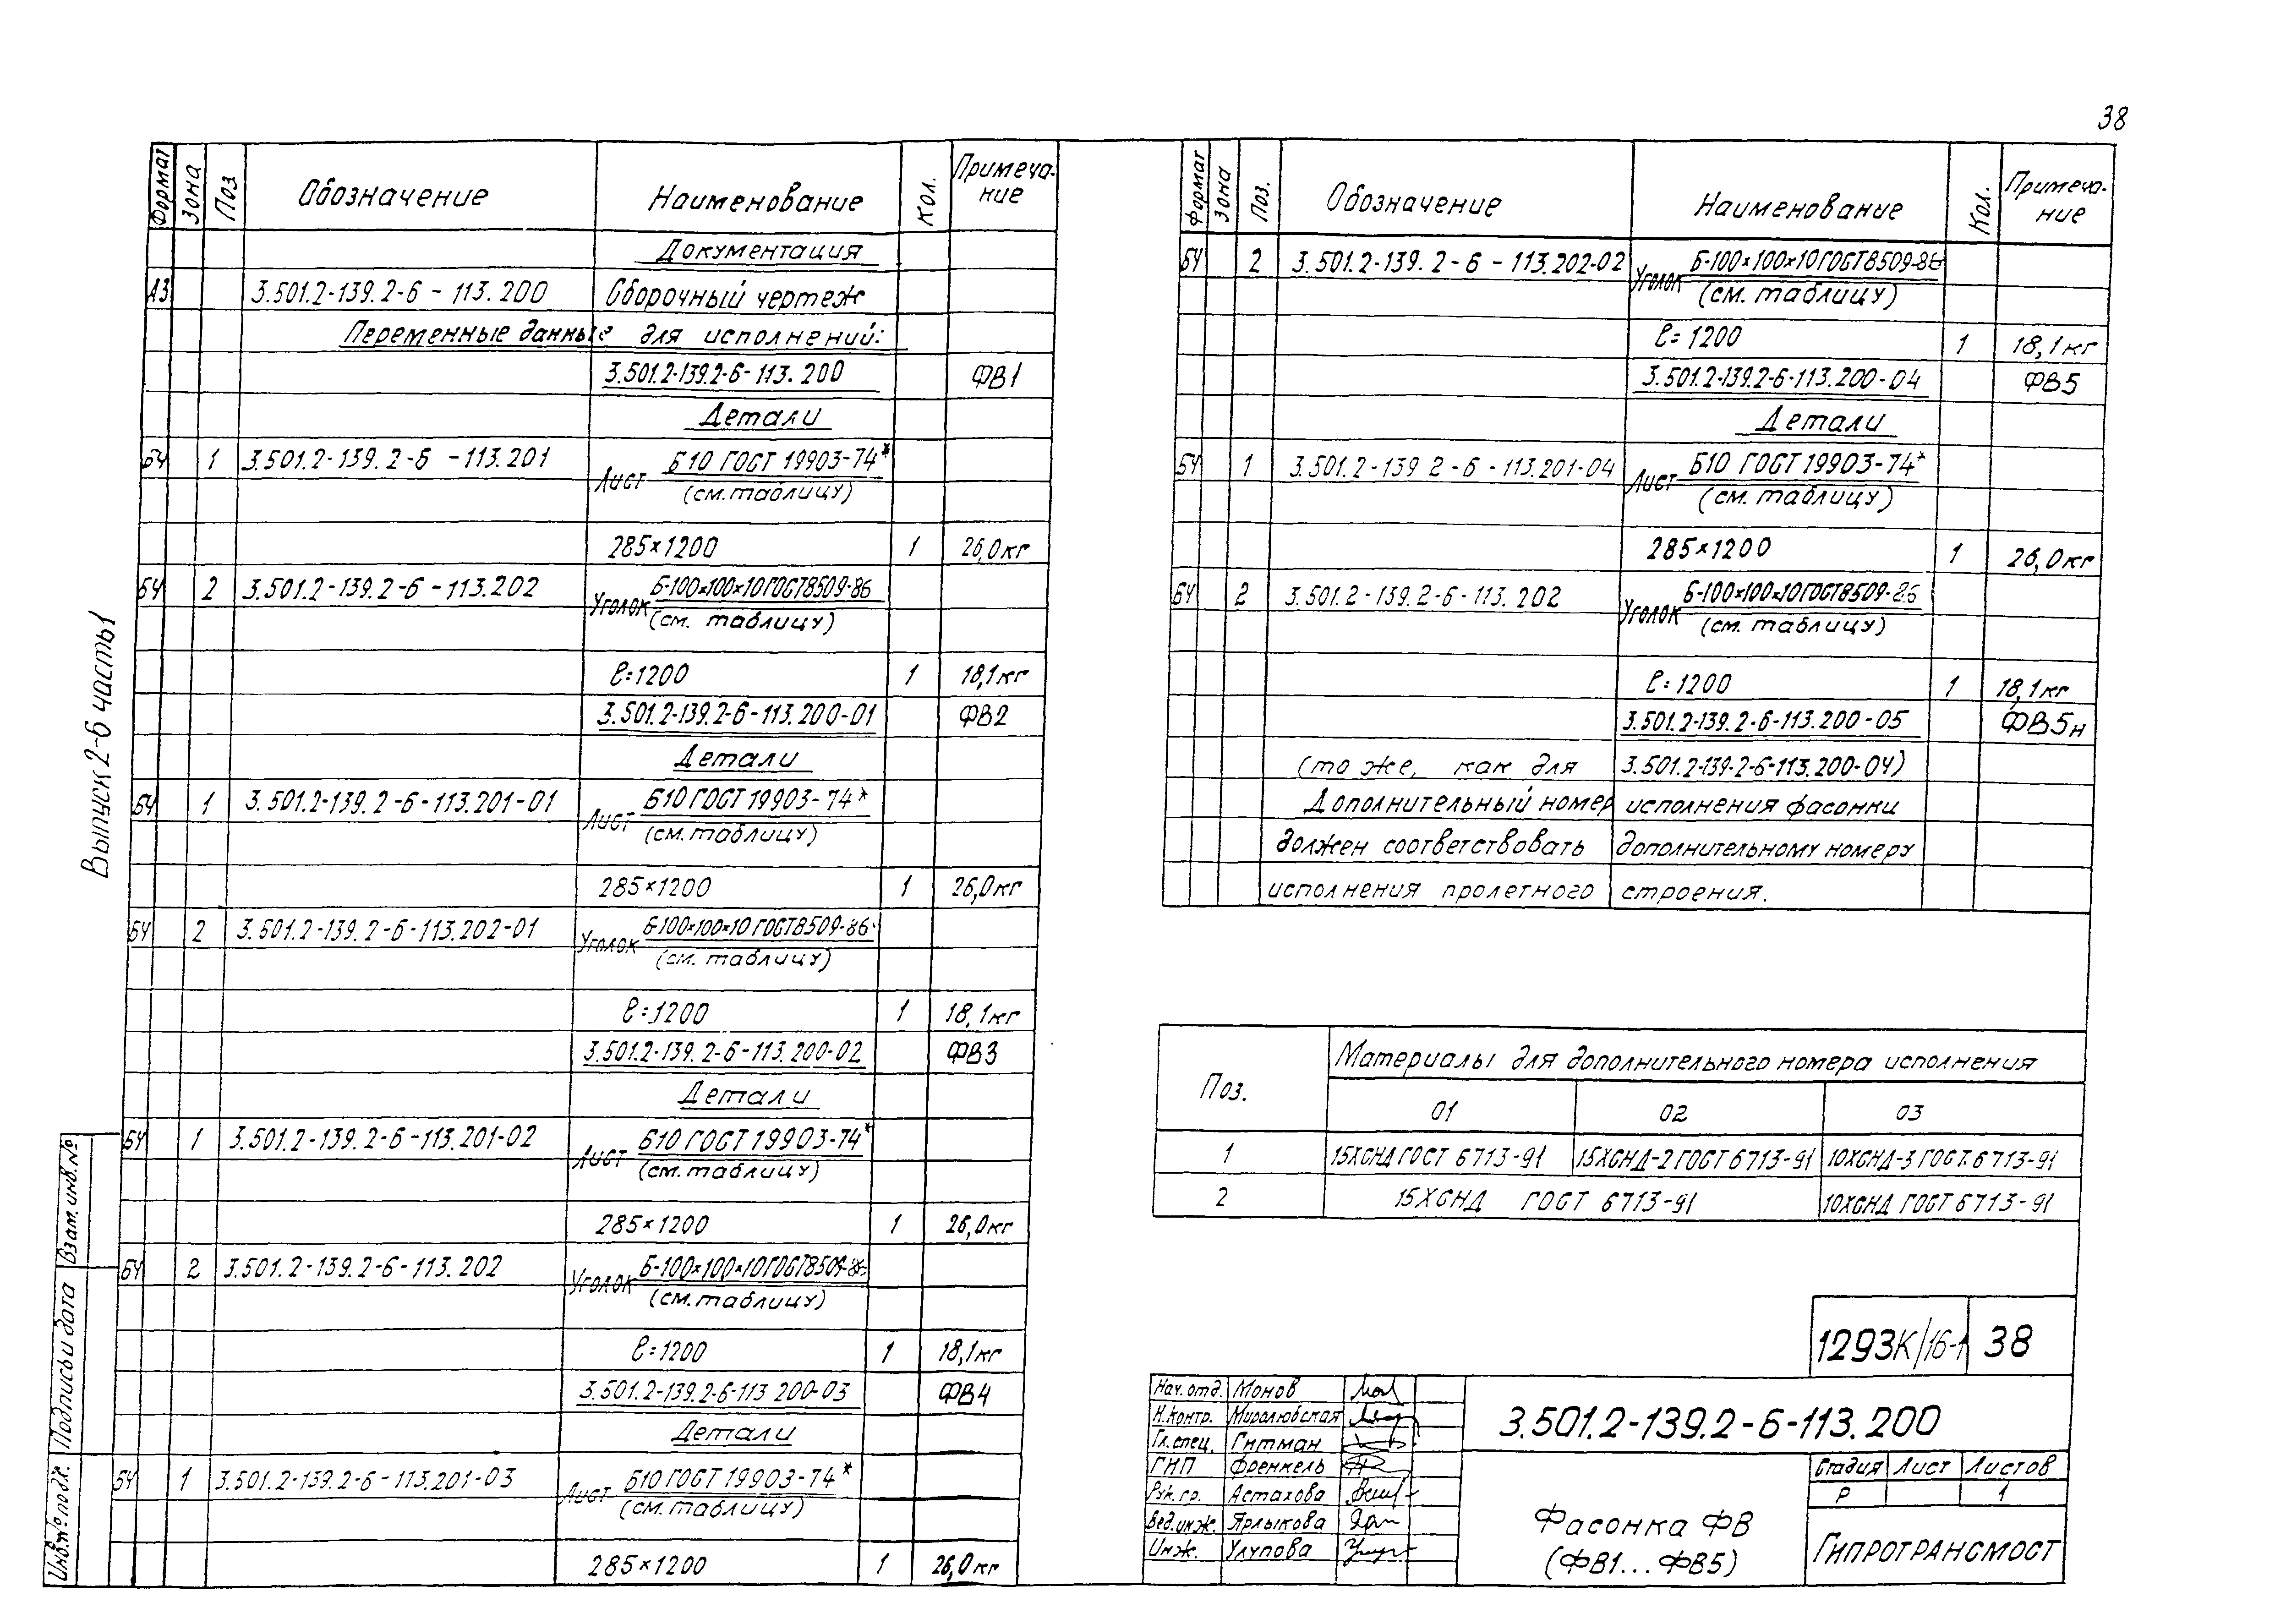 38
Формат Зона Поз Обозначение Наименование Кол. Примеча-
ние
Документация
А3 3.501.2-139.2-6-113.200 Сборочный чертеж
Переменные данные для исполнений:
3.501.2-139.2-6-113.200 ФВ1
Детали
БЧ 1 3.501.2-139.2-6-113.201 Лист Б10 ГОСТ 19903-74*
(см. таблицу)
285×1200 1 26,0кг
БЧ 2 3.501.2-139.2-6-113.202 Уголок Б-100×100×10 ГОСТ 8509-86
(см. таблицу)
ℓ=1200 1 18,1кг
3.501.2-139.2-6-113.200-01 ФВ2
Детали
БЧ 1 3.501.2-139.2-6-113.201-01 Лист Б10 ГОСТ 19903-74*
(см. таблицу)
285×1200 1 26,0кг
БЧ 2 3.501.2-139.2-6-113.202-01 Уголок Б-100×100×10 ГОСТ 8509-86
(см. таблицу)
ℓ=1200 1 18,1кг
3.501.2-139.2-6-113.200-02 ФВ3
Детали
БЧ 1 3.501.2-139.2-6-113.201-02 Лист Б10 ГОСТ 19903-74*
(см. таблицу)
285×1200 1 26,0кг
БЧ 2 3.501.2-139.2-6-113.202 Уголок Б-100×100×10 ГОСТ 8509-86
(см. таблицу)
ℓ=1200 1 18,1кг
3.501.2-139.2-6-113.200-03 ФВ4
Детали
БЧ 1 3.501.2-139.2-6-113.201-03 Лист Б10 ГОСТ 19903-74*
(см. таблицу)
285×1200 1 26,0кг
Формат Зона Поз. Обозначение Наименование Кол. Примеча-
ние
БЧ 2 3.501.2-139.2-6-113.202-02 Уголок Б-100×100×10 ГОСТ 8509-86
(см. таблицу)
ℓ=1200 1 18,1кг
3.501.2-139.2-6-113.200-04 ФВ5
Детали
БЧ 1 3.501.2-139 2-6-113.201-04 Лист Б10 ГОСТ 19903-74*
(см. таблицу)
285×1200 1 26,0кг
БЧ 2 3.501.2-139.2-6-113.202 Уголок Б-100×100×10 ГОСТ 8509-86
(см. таблицу)
ℓ=1200 1 18,1кг
3.501.2-139.2-6-113.200-05 ФВ5н
(то же, как для 3.501.2-139-2-6-113.200-04)
Дополнительный номер исполнения фасонки
должен соответствовать дополнительному номеру
исполнения пролетного строения.
Поз. Материалы для дополнительного номера исполнения
01 02 03
1 15ХСНД ГОСТ 6713-91 15ХСНД-2 ГОСТ 6713-91 10ХСНД-3 ГОСТ 6713-91
2 15ХСНД ГОСТ 6713-91 10ХСНД ГОСТ 6713-91
1293К/16-1 38
Нач. отд. Монов
Н.контр. Миролюбская
Гл.спец. Гитман
ГИП Френкель
Рук.гр. Астахова
Вед.инж. Ярлыкова
Инж. Улупова
3.501.2-139.2-6-113.200
Фасонка ФВ
(ФВ1...ФВ5)
Стадия Лист Листов
Р 1
Гипротрансмост
Выпуск 2-6 часть 1
Взам. инв.№
Подпись и дата
Инв.№ подл.